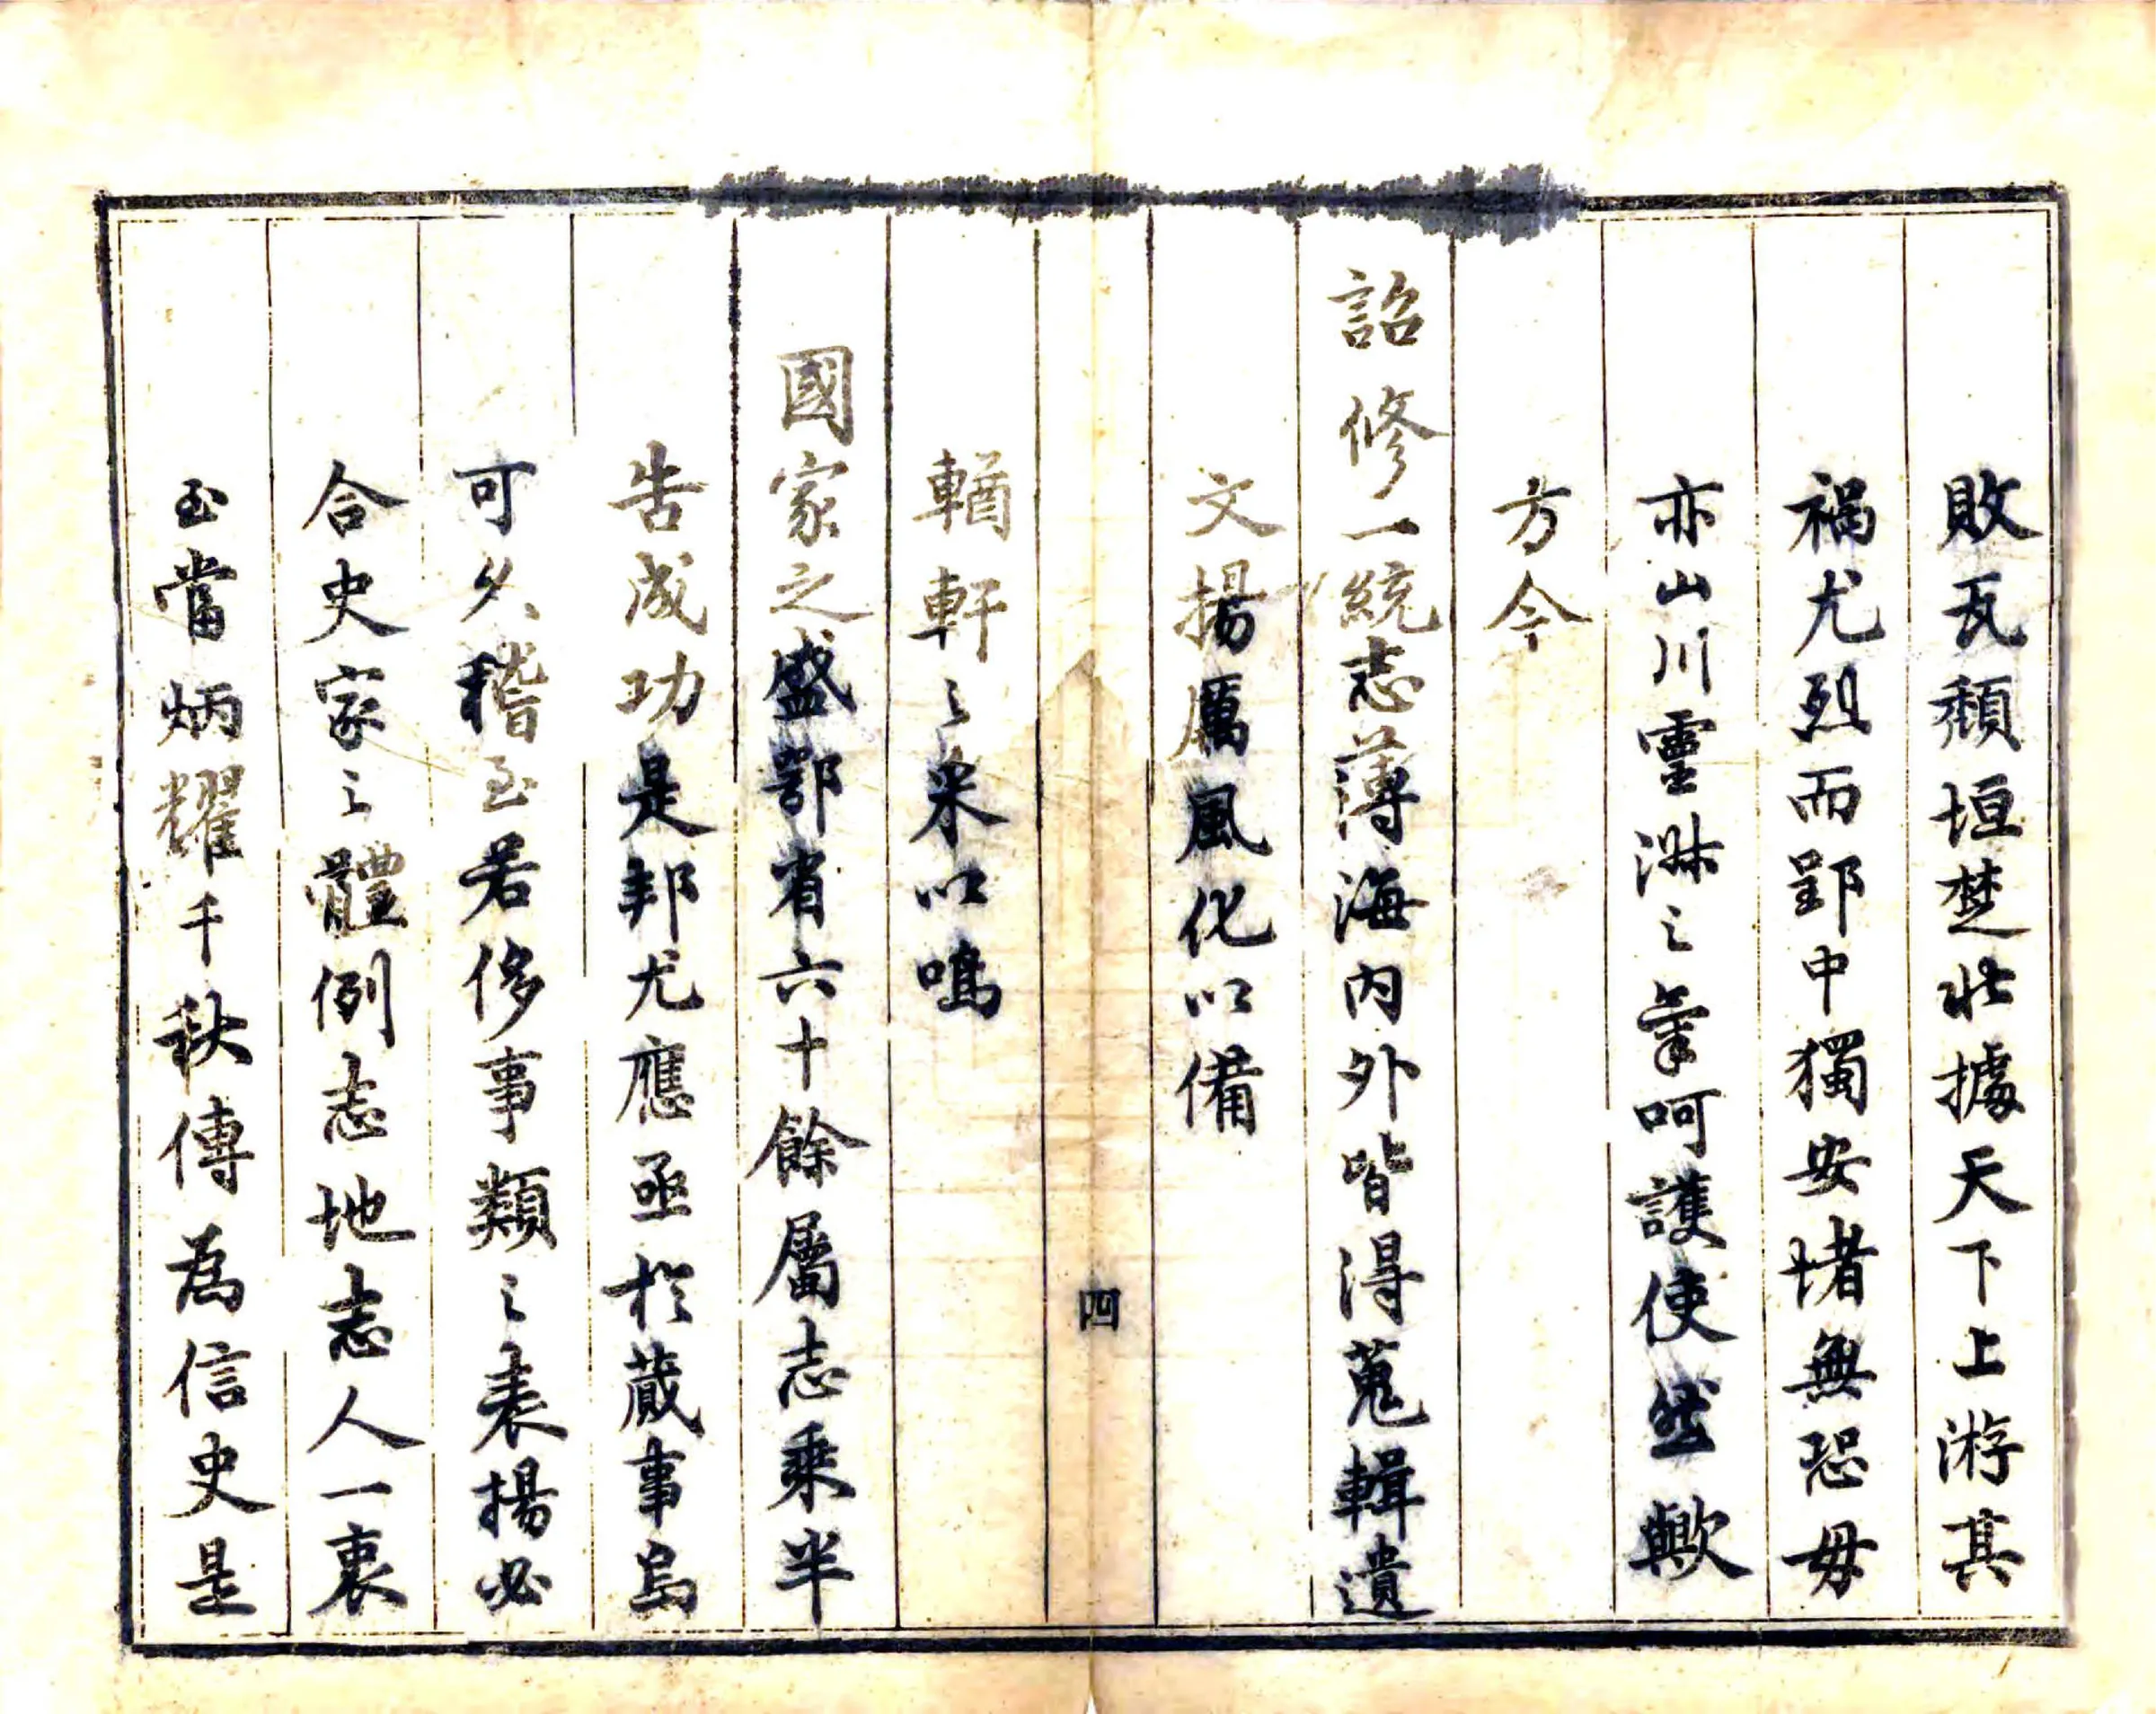 敗瓦頹垣楚北據天下上游其
禍尤烈而郢中獨安堵無恐毋
亦山川靈淑之氣呵護使然歟
方今
詔修一統志薄海內外皆得蒐輯遺
文揚厲風化以備
輶軒之采以鳴
國家之盛鄂省六十餘屬志乘半
告成功是邦尤應亟於蕆事烏
可久稽至若侈事類之表揚必
合史家之體例志地志人一衷
至當炳耀千秋傳為信史是
四